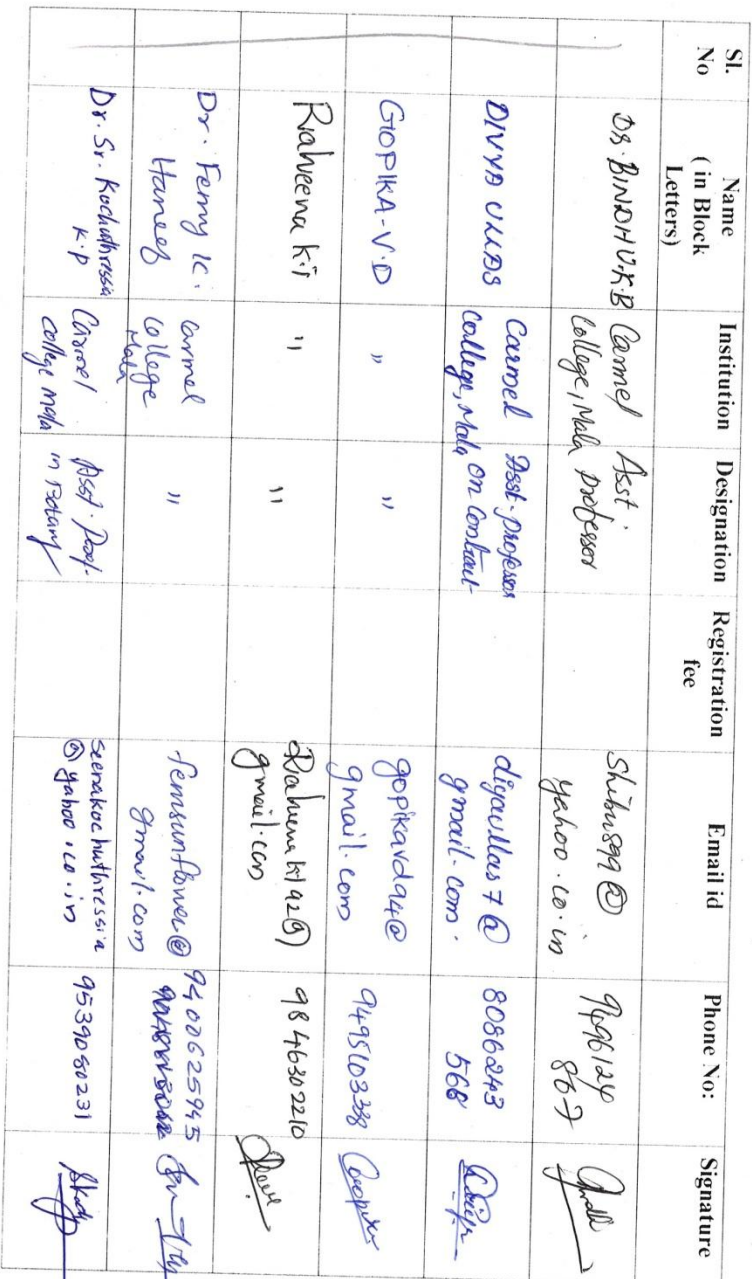 Sl. No
Name
( in Block
Letters)
Institution
Designation
Registration
fee
Email id
Phone No:
Signature
DR. BINDHU.K.B
Carmel
College, Mala
Asst.
professor
yahoo.co.in
9496124
867
DIVYA ULLAS
Carmel
College, Mala
Asst. professor
on Contract
divyaullas7@
gmail.com.
8086243
566
GOPIKA-V.D
"
"
gopikavd94@
gmail.com
9495103338
"
"
gmail.com
9846302210
Dr. Femy K.
Haneef
Carmel
College
Mala
"
femsunflower@
gmail.com
9400625945
Dr. Sr. Kochuthressia
K.P
Carmel
College mala
Asst. Prof.
in Botany
seenakochuthressia
@ yahoo.co.in
9539050231